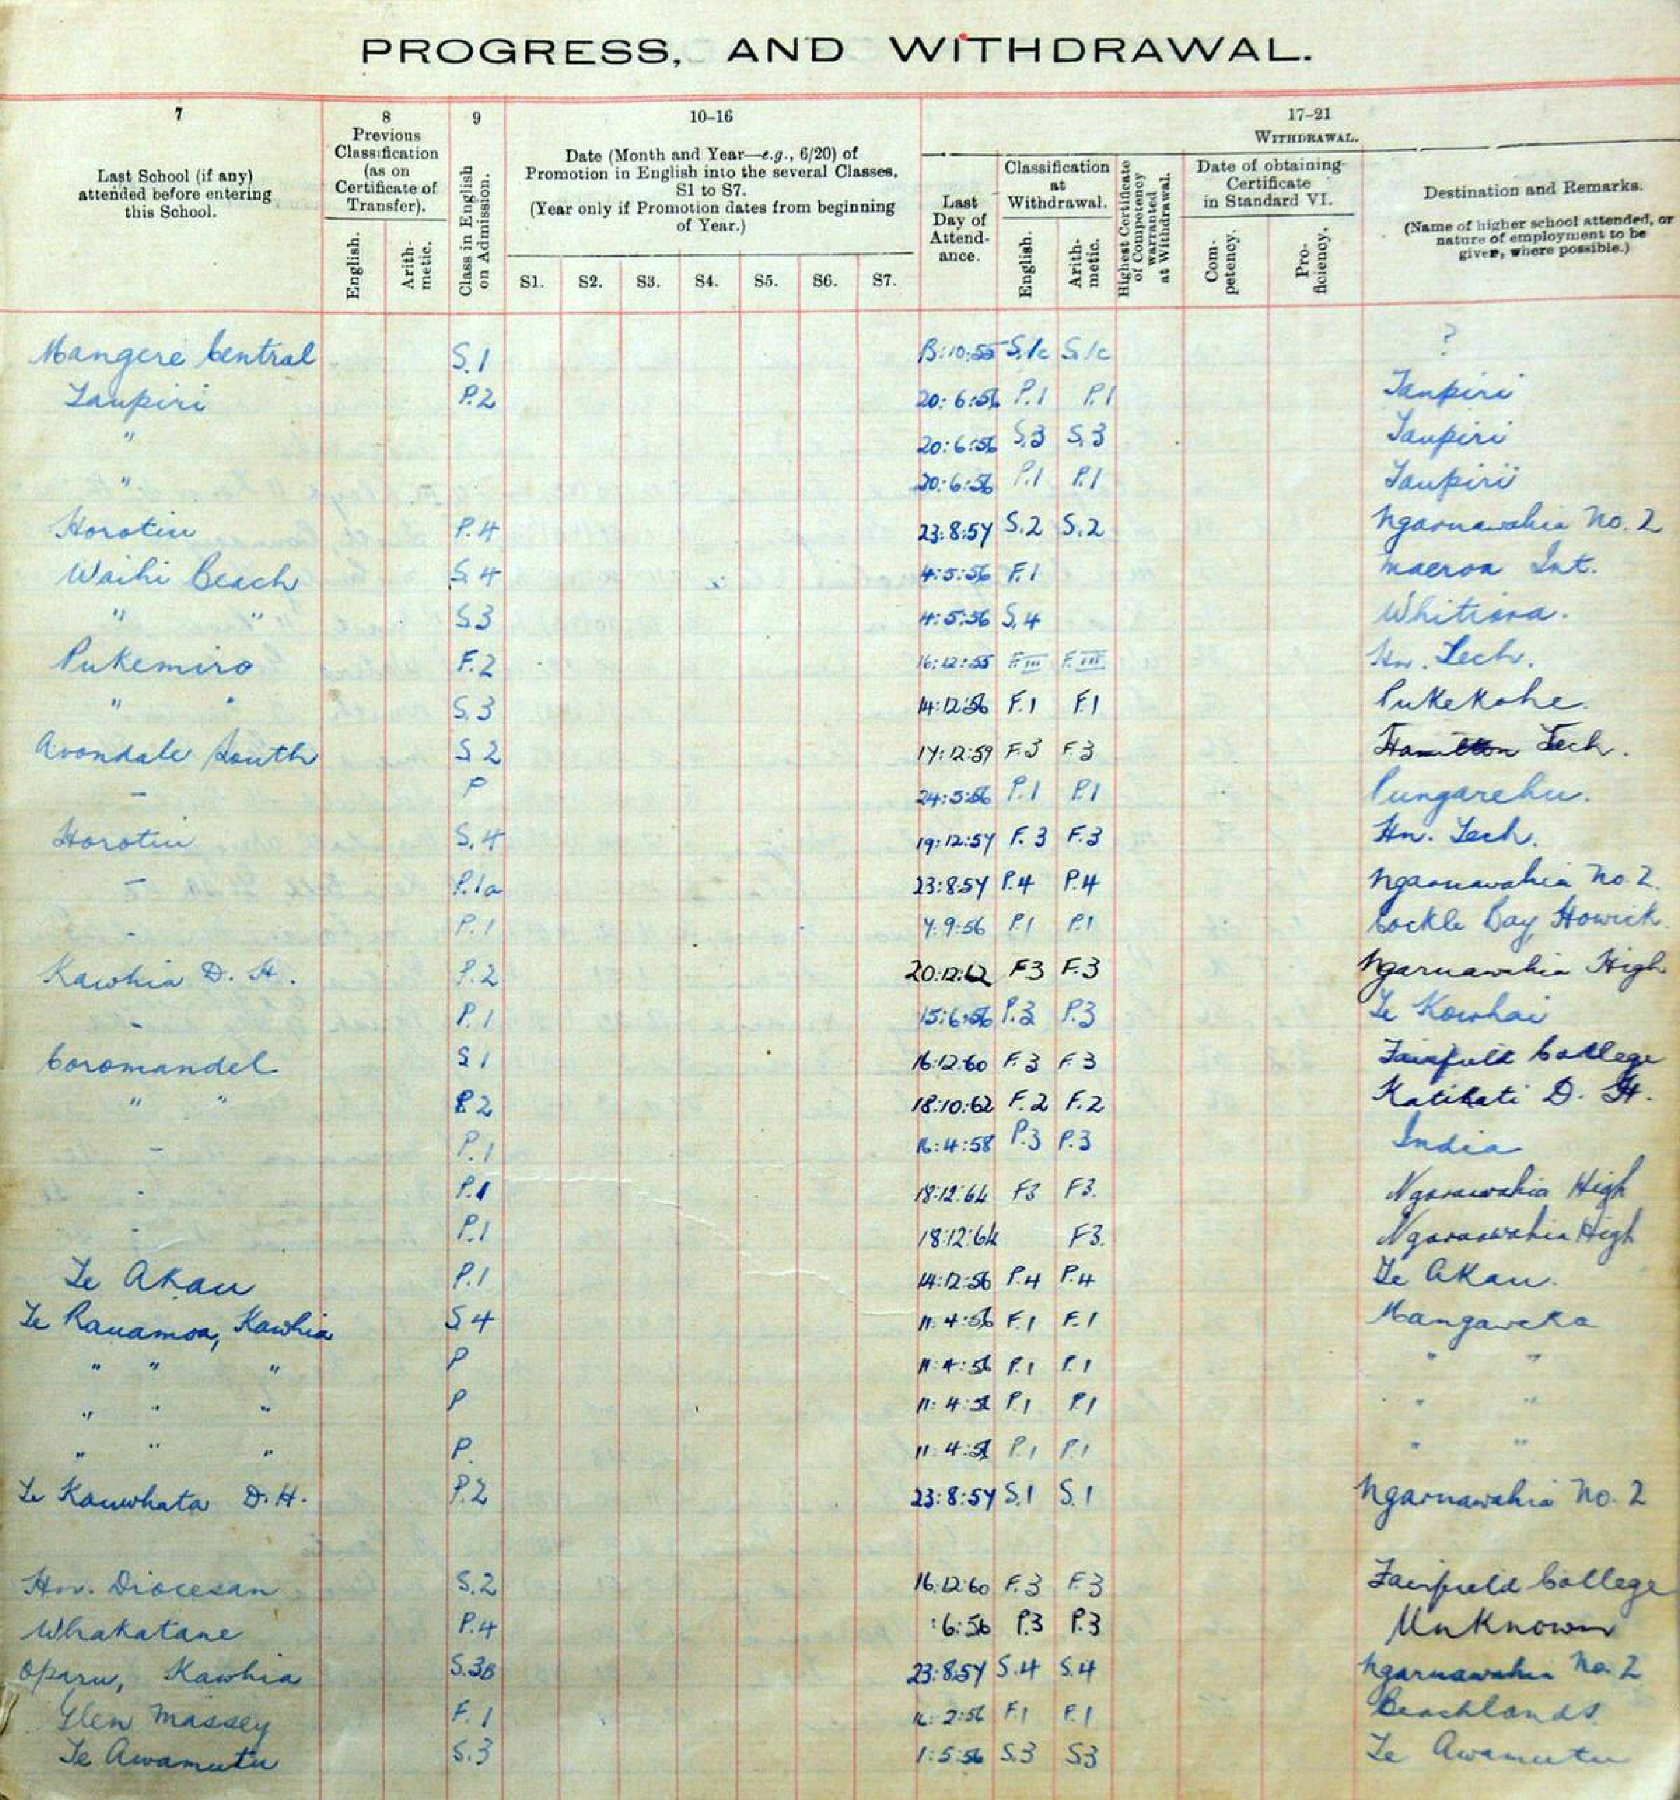 PROGRESS, AND WITHDRAWAL.
7 8 9 10–16 17–21
Last School (if any) attended before entering this School.
Previous Classification (as on Certificate of Transfer).
English.
Arithmetic.
Class in English on Admission.
Date (Month and Year—e.g., 6/20) of Promotion in English into the several Classes, S1 to S7.
(Year only if Promotion dates from beginning of Year.)
S1. S2. S3. S4. S5. S6. S7.
WITHDRAWAL.
Last Day of Attendance.
Classification at Withdrawal.
English.
Arithmetic.
Highest Certificate of Competency warranted at Withdrawal.
Date of obtaining Certificate in Standard VI.
Competency.
Proficiency.
Destination and Remarks.
(Name of higher school attended, or nature of employment to be given, where possible.)
Mangere Central S.1 13:10:55 S.1c S.1c ?
Taupiri P.2 20:6:56 P.1 P.1 Taupiri
" 20:6:56 S.3 S.3 Taupiri
" 20:6:56 P.1 P.1 Taupiri
Horotiu P.4 23:8:57 S.2 S.2 Ngaruawahia No. 2
Waihi Beach S.4 4:5:56 F.1 Maeroa Int.
" " S3 4:5:56 S.4 Whitiora.
Pukemiro F.2 16:12:55 F.III F.III Hn. Tech.
" " S.3 14:12:56 F.1 F.1 Pukekohe.
Avondale South S2 17:12:59 F.3 F.3 Hamilton Tech.
– P 24:5:56 P.1 P.1 Pungarehu.
Horotiu S.4 19:12:57 F.3 F.3 Hn. Tech.
– P.1a 23:8:57 P.4 P.4 Ngaruawahia No. 2
- P.1 7:9:56 P.1 P.1 Cockle Bay Howick
Kawhia D. H. P.2 20:12:62 F3 F.3 Ngaruawahia High
- P.1 15:6:56 P.3 P.3 Te Kowhai
Coromandel S1 16:12:60 F.3 F.3 Fairfield College
" " P.2 18:10:62 F.2 F.2 Katikati D. H.
– P.1 16:4:58 P.3 P.3 India
- P.1 18:12:64 F3 F3. Ngaruawahia High
- P.1 18:12:64 F3. Ngaruawahia High
Te Akau P.1 14:12:56 P.4 P.4 Te Akau.
Te Rauamoa, Kawhia S4 11:4:56 F.1 F.1 Mangaweka
" " " P 11:4:56 P.1 P.1 " "
" " " P 11:4:56 P.1 P.1 " "
" " " P. 11:4:56 P.1 P.1 " "
Te Kauwhata D.H. P.2 23:8:57 S.1 S.1 Ngaruawahia No. 2
Hn. Diocesan S.2 16:12:60 F.3 F.3 Fairfield College
Whakatane P.4 :6:56 P.3 P.3 Unknown
Oparu, Kawhia S.3B 23:8:57 S.4 S.4 Ngaruawahia No. 2
Glen Massey F.1 2:56 F.1 F.1 Beachlands
Te Awamutu S.3 1:5:56 S.3 S3 Te Awamutu